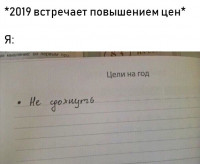 *2019 встречает повышением цен*
Я:
Цели на год
• Не сдохнуть